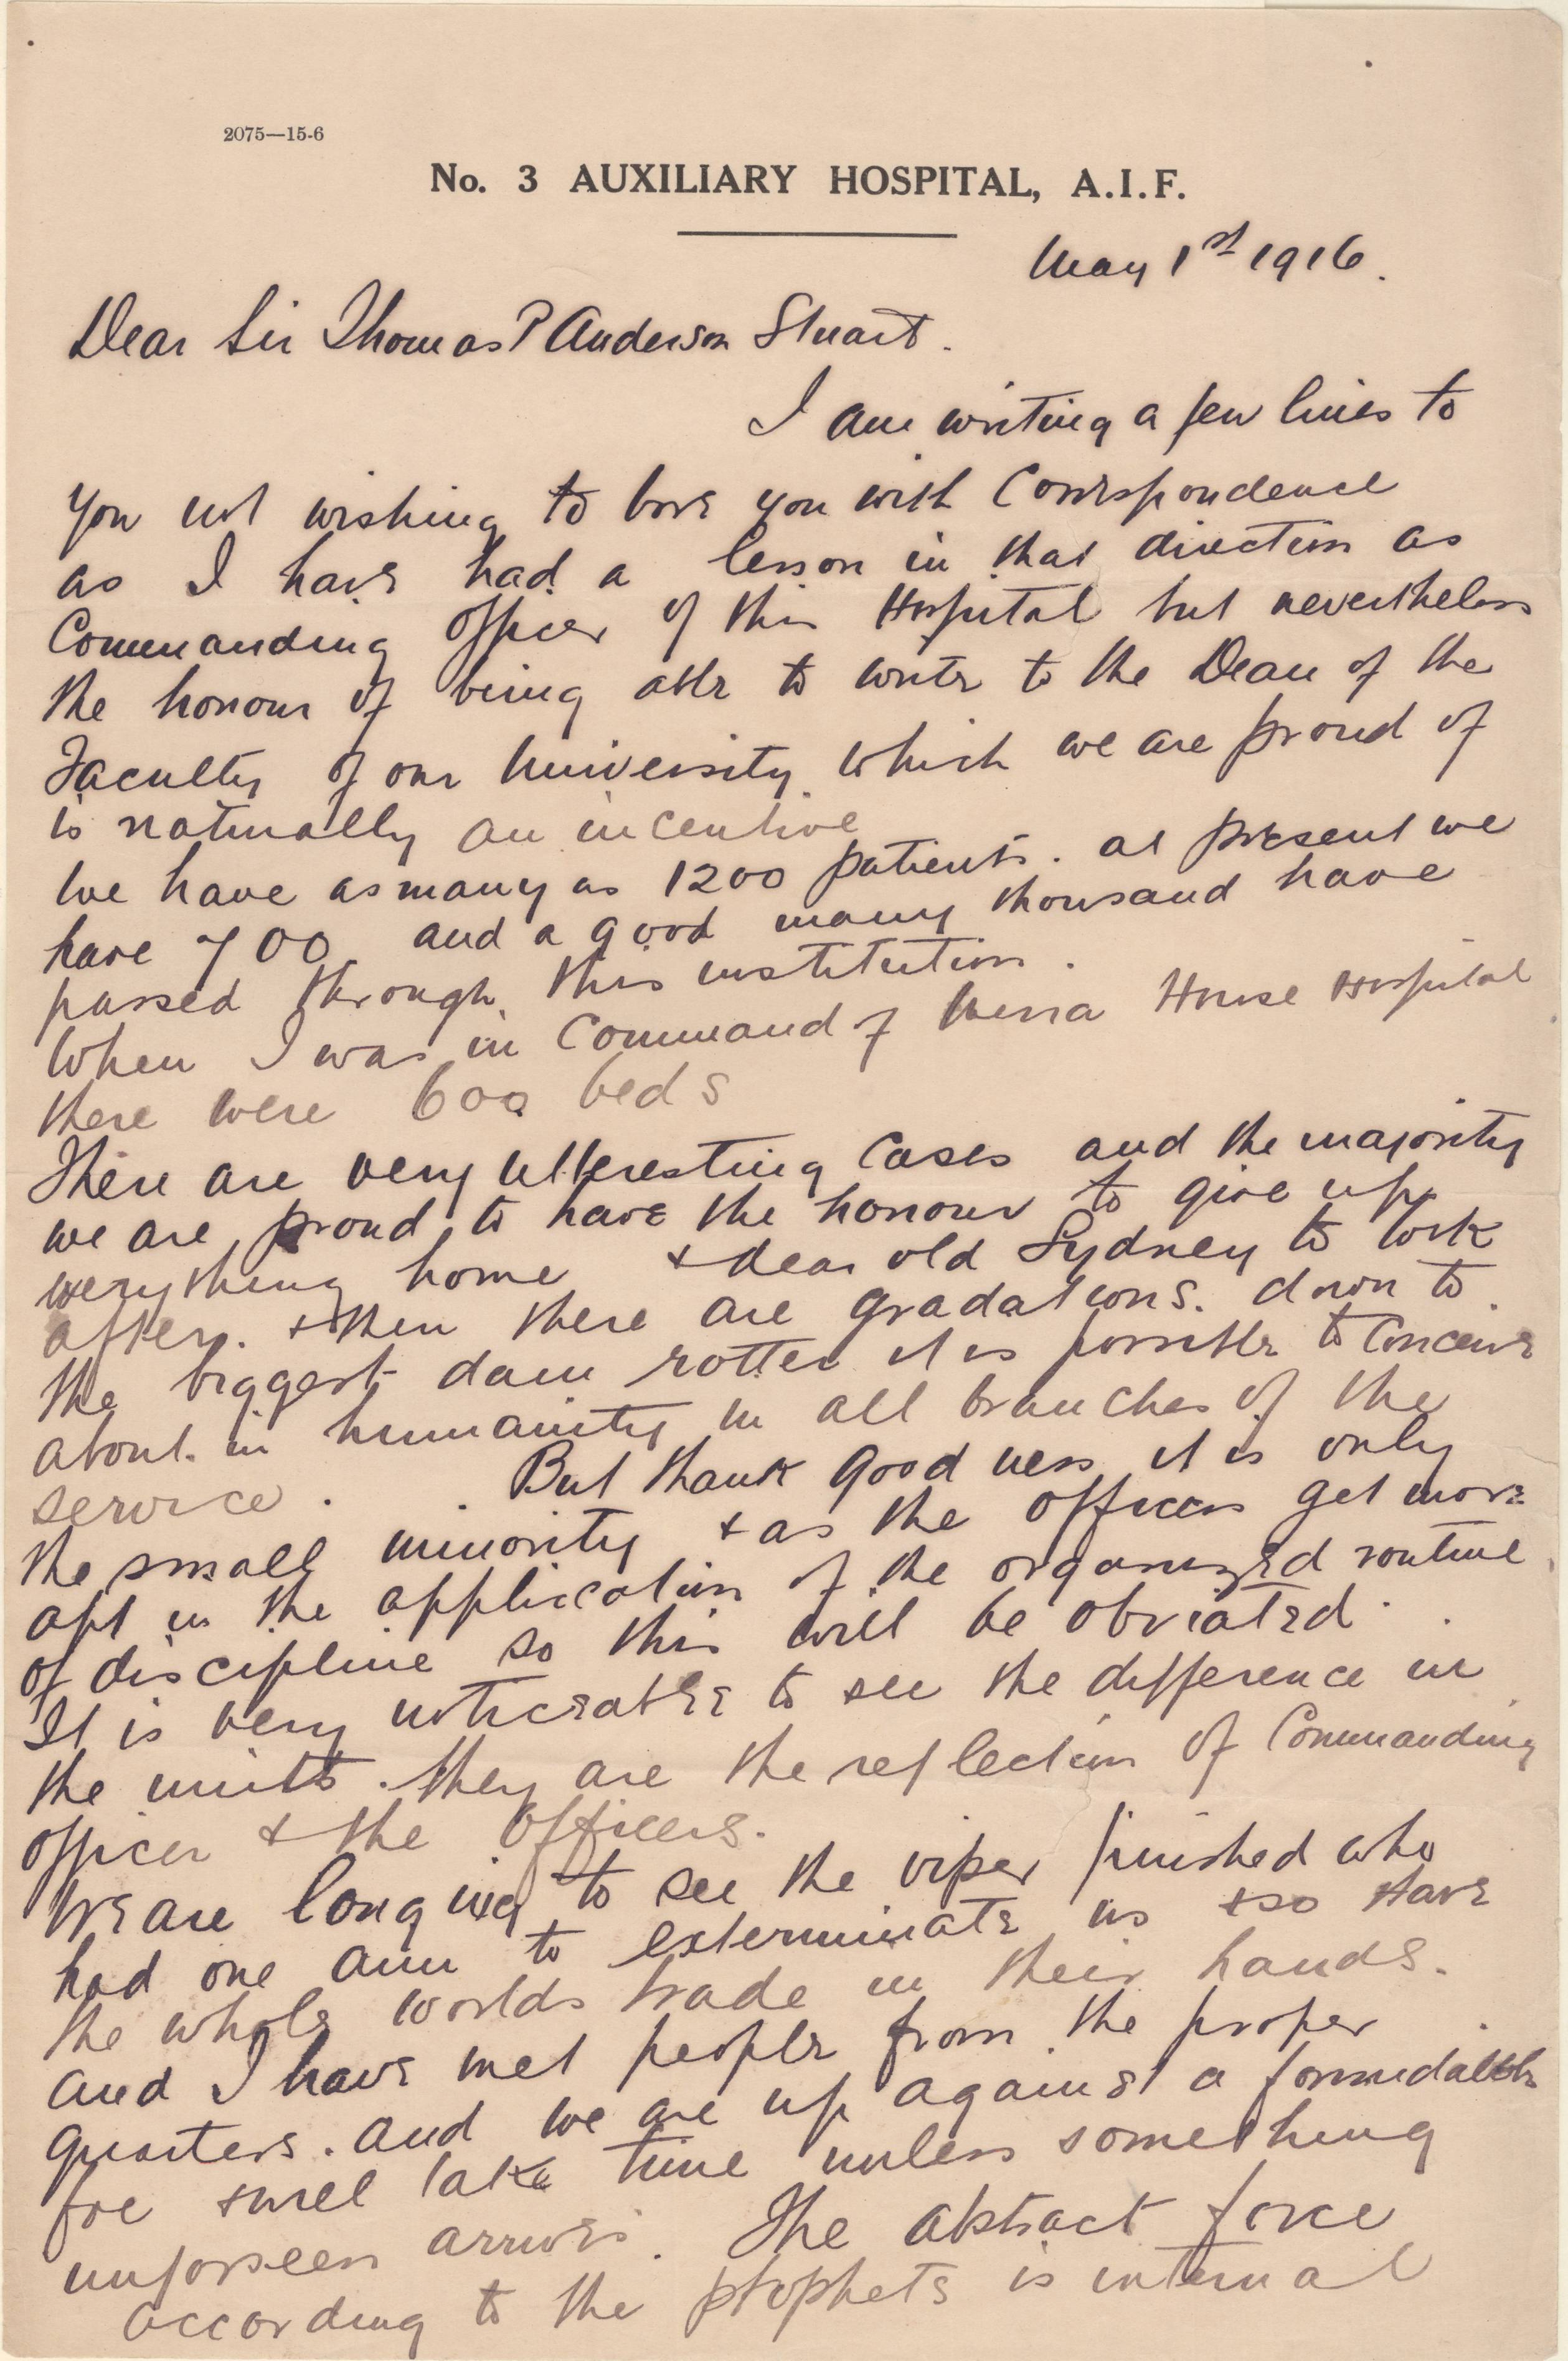 2075—15-6
No. 3 AUXILIARY HOSPITAL, A.I.F.
May 1st 1916.
Dear Sir Thomas P Anderson Stuart.
I am writing a few lines to
you not wishing to bore you with Correspondence
as I have had a lesson in that direction as
Commanding Officer of this Hospital but nevertheless
the honour of being able to write to the Dean of the
Faculty of our University which we are proud of
is naturally an incentive
We have as many as 1200 patients. at present we
have 700 and a good many thousand have
passed through this institution.
When I was in Command of Mena House Hospital
there were 600 beds
There are very interesting Cases and the majority
we are proud to have the honour to give up
everything home & dear old Sydney to look
after. & then there are gradations. down to
the biggest dam rotter it is possible to Conceive
about in humanity in all branches of the
service. But thank goodness it is only
the small minority & as the officers get more
apt in the application of the organized routine
of discipline so this will be obviated.
It is very noticeable to see the difference in
the units. they are the reflection of Commanding
officer & the Officers.
We are longing to see the viper finished who
had one aim to exterminate us & so have
the whole worlds trade in their hands.
and I have met people from the proper
quarters. and we are up against a formidable
foe & will take time unless something
unforseen arrives. The abstract force
according to the prophets is internal